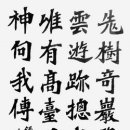 樹奇巖
雲遊跡摠
唯有高臺
神何我傳